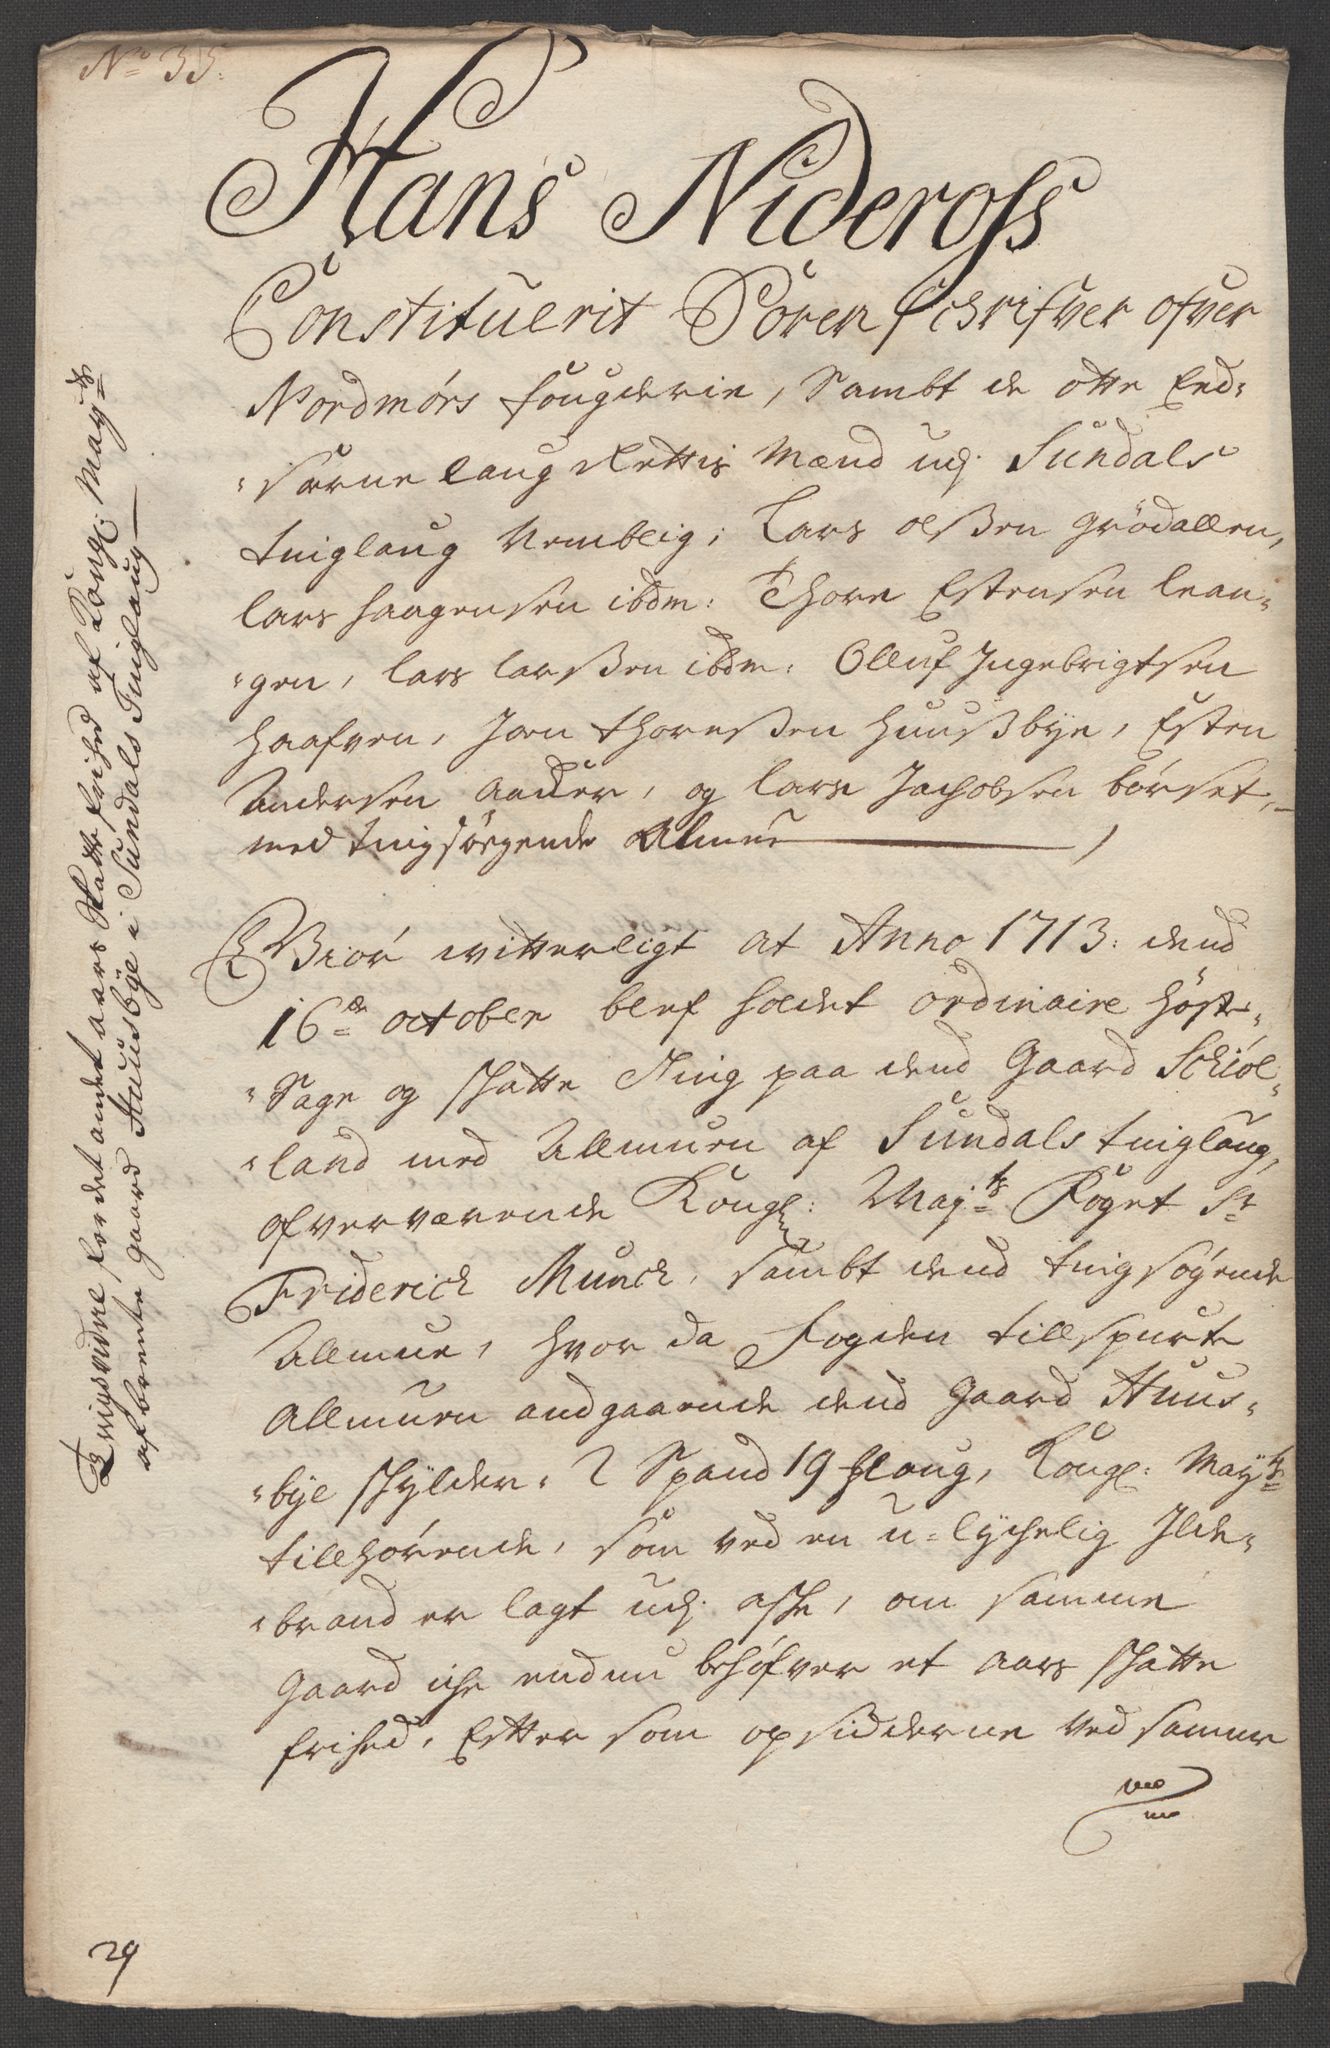 No 35:
Hans Nideross
Constituerit Sorenschrifver ofver
Nordmørs fougderie, Sambt de otte Eed-
-sorne laug Rettis Mænd udj Sundals
tinglaug Nemblig; Lars olsen Grödallen,
lars haagensen ibdm: Thore Estensen lean-
-gen, lars larsen ibdm: Olluf Ingebrigtsen
haafven, Joen thoresen huusbye, Esten
Andersen aader, og lars Jachobsen børset,
med tingsøgende Almue
Giör witterligt at Anno 1713: dend
16de october blef holdet ordinaire høste-
-Sage og skatte Ting paa dend Gaard Schiöl-
-land med Allmuen af Sundals tinglaug,
ofverværende Kongl: Mayts Foget Sr
Friderich Munch, sambt dend tingsøgende
Allmue, hvor da fogden tillspurte
Allmuen andgaaende dend Gaard Huus-
-bye skylder 2 Spand 19 Mlaug, Kongl: Mayts
tillhørende, som ved en u-lychelig Ilde-
-brand er lagt udj aske, om samme
Gaard iche endnu behøfver et aars skatte
frihed, Efter som opsidderne ved samme
Tingsvidne for det andet aars skatte frihed af Kongl: Mayts
afbrente gaard Huusbye i Sundals Tinglaug
29